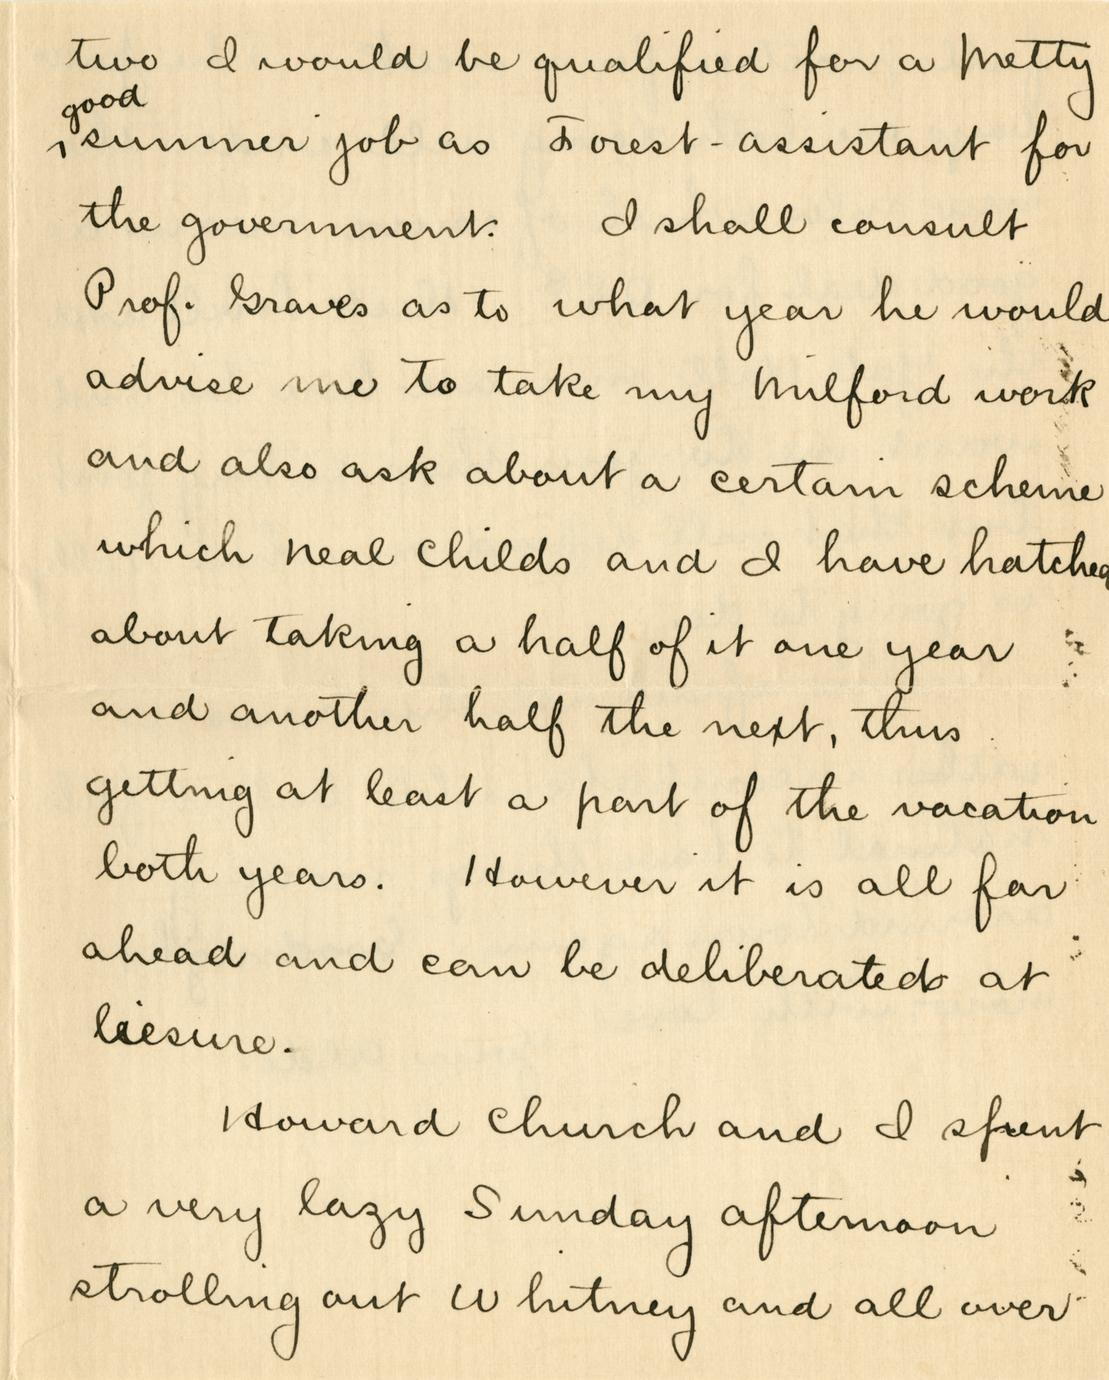 two I would be qualified for a pretty
good
summer job as Forest-assistant for
the government. I shall consult
Prof. Graves as to what year he would
advise me to take my Milford work
and also ask about a certain scheme
which Neal Childs and I have hatched
about taking a half of it one year
and another half the next, thus
getting at least a part of the vacation
both years. However it is all far
ahead and can be deliberated at
liesure.
Howard Church and I spent
a very lazy Sunday afternoon
strolling out Whitney and all over